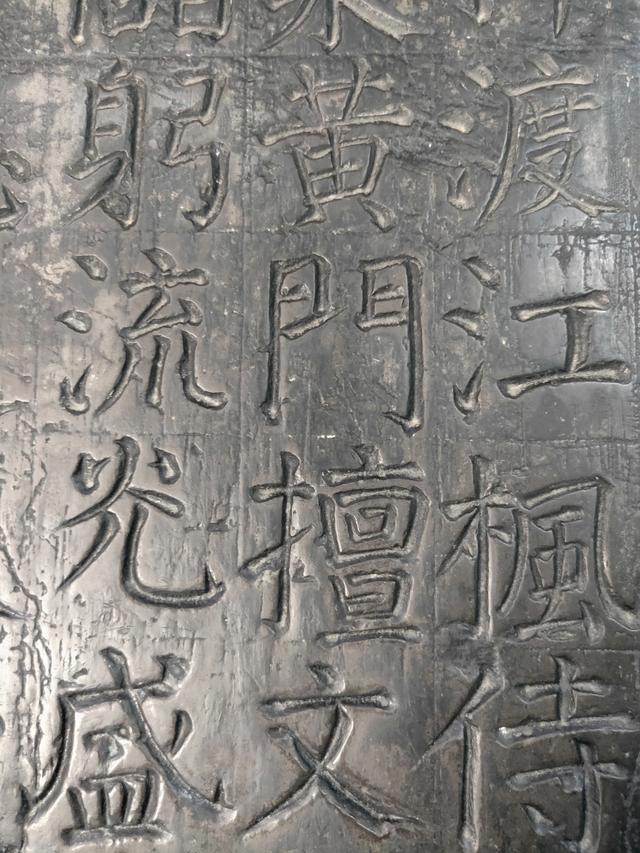 渡江楓侍
黃門擅文
躬流灮盛